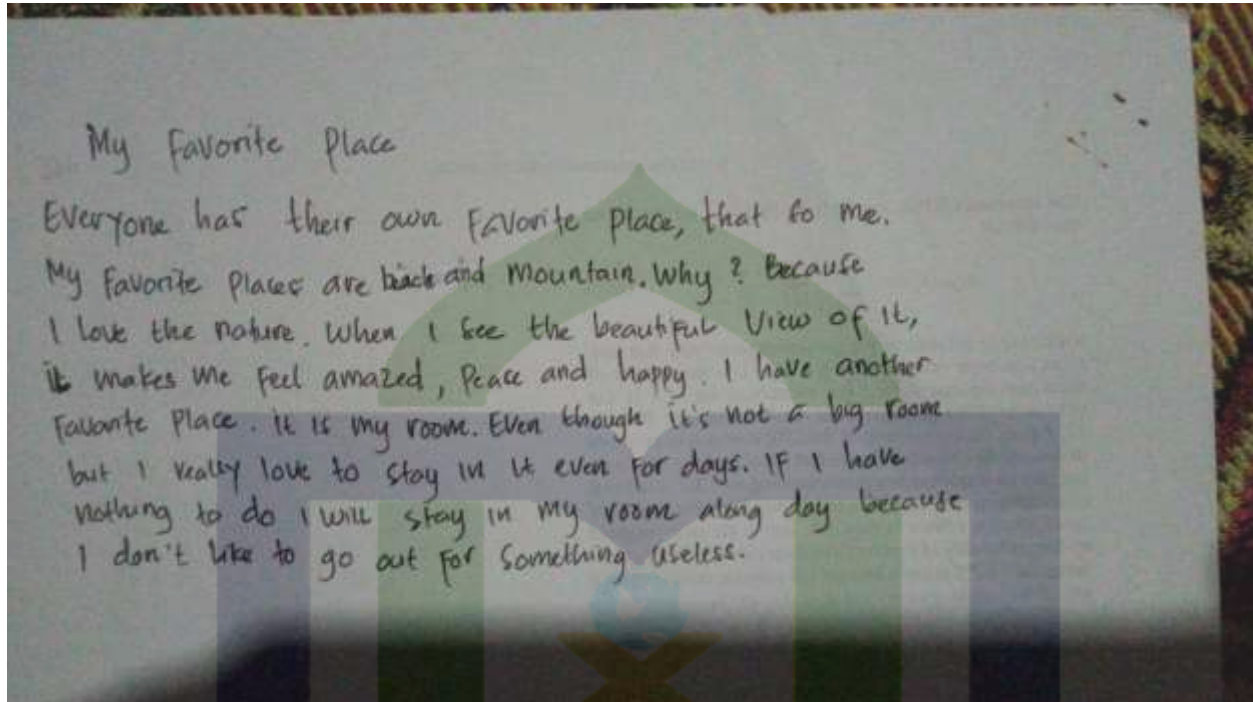 My Favorite Place
Everyone has their own Favorite Place, that to me.
My Favorite Places are and Mountain. Why? Because
I love the nature. When I see the beautiful View of it,
it makes me feel amazed, Peace and happy. I have another
Favorite Place. it is my room. Even though it's not a big room
but I really love to stay in it even for days. If I have
nothing to do I will stay in my room along day because
I don't like to go out for something useless.